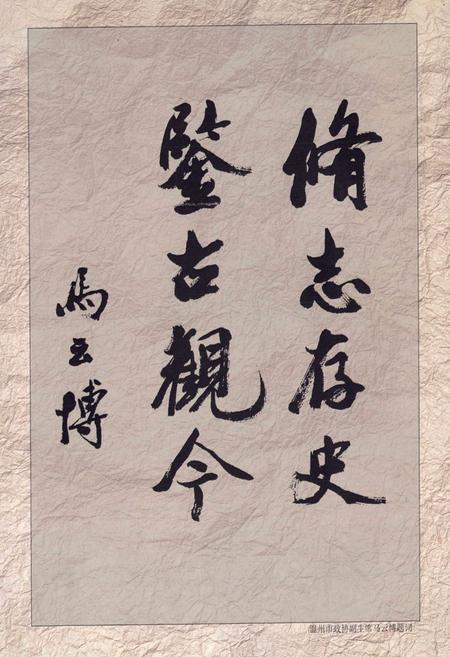 脩志存史
鑒古觀今
馬云博
温州市政协副主席马云博题词